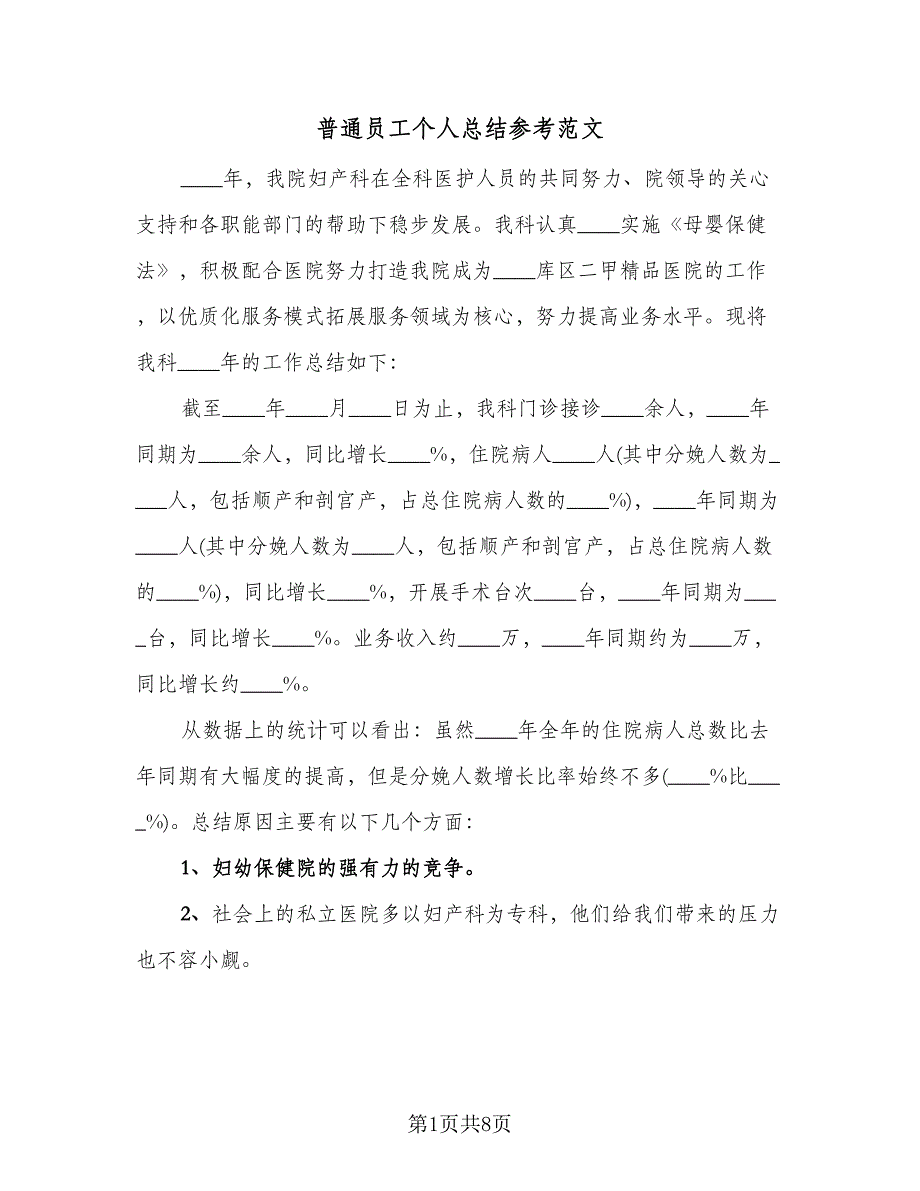 普通员工个人总结参考范文
____年，我院妇产科在全科医护人员的共同努力、院领导的关心
支持和各职能部门的帮助下稳步发展。我科认真____实施《母婴保健
法》，积极配合医院努力打造我院成为____库区二甲精品医院的工作
，以优质化服务模式拓展服务领域为核心，努力提高业务水平。现将
我科____年的工作总结如下：
截至____年____月____日为止，我科门诊接诊____余人，____年
同期为____余人，同比增长____%，住院病人____人(其中分娩人数为_
___人，包括顺产和剖宫产，占总住院病人数的____%)，____年同期为
____人(其中分娩人数为____人，包括顺产和剖宫产，占总住院病人数
的____%)，同比增长____%，开展手术台次____台，____年同期为___
_台，同比增长____%。业务收入约____万，____年同期约为____万，
同比增长约____%。
从数据上的统计可以看出：虽然____年全年的住院病人总数比去
年同期有大幅度的提高，但是分娩人数增长比率始终不多(____%比___
_%)。总结原因主要有以下几个方面：
1、妇幼保健院的强有力的竞争。
2、社会上的私立医院多以妇产科为专科，他们给我们带来的压力
也不容小觑。
第1页共8页